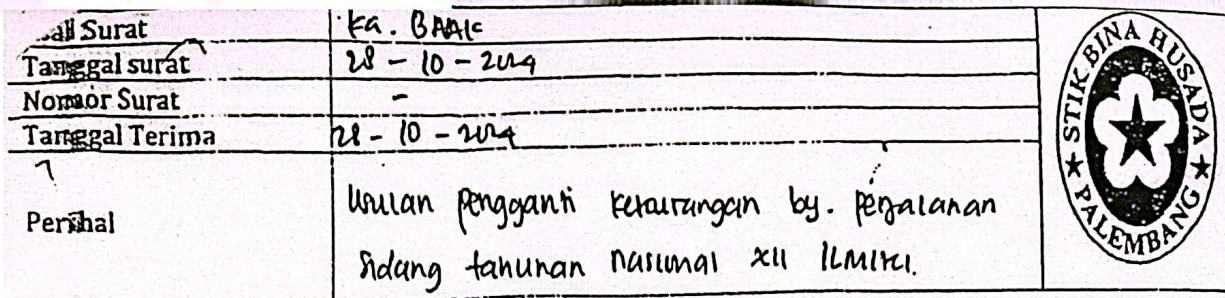 Asal Surat Ka. BAAK
Tanggal surat 28 - 10 - 2024
Nomor Surat -
Tanggal Terima 28 - 10 - 2024
Perihal Usulan pengganti kekurangan by. perjalanan
Sidang tahunan nasional XII ILMIKI.
STIK BINA HUSADA
PALEMBANG